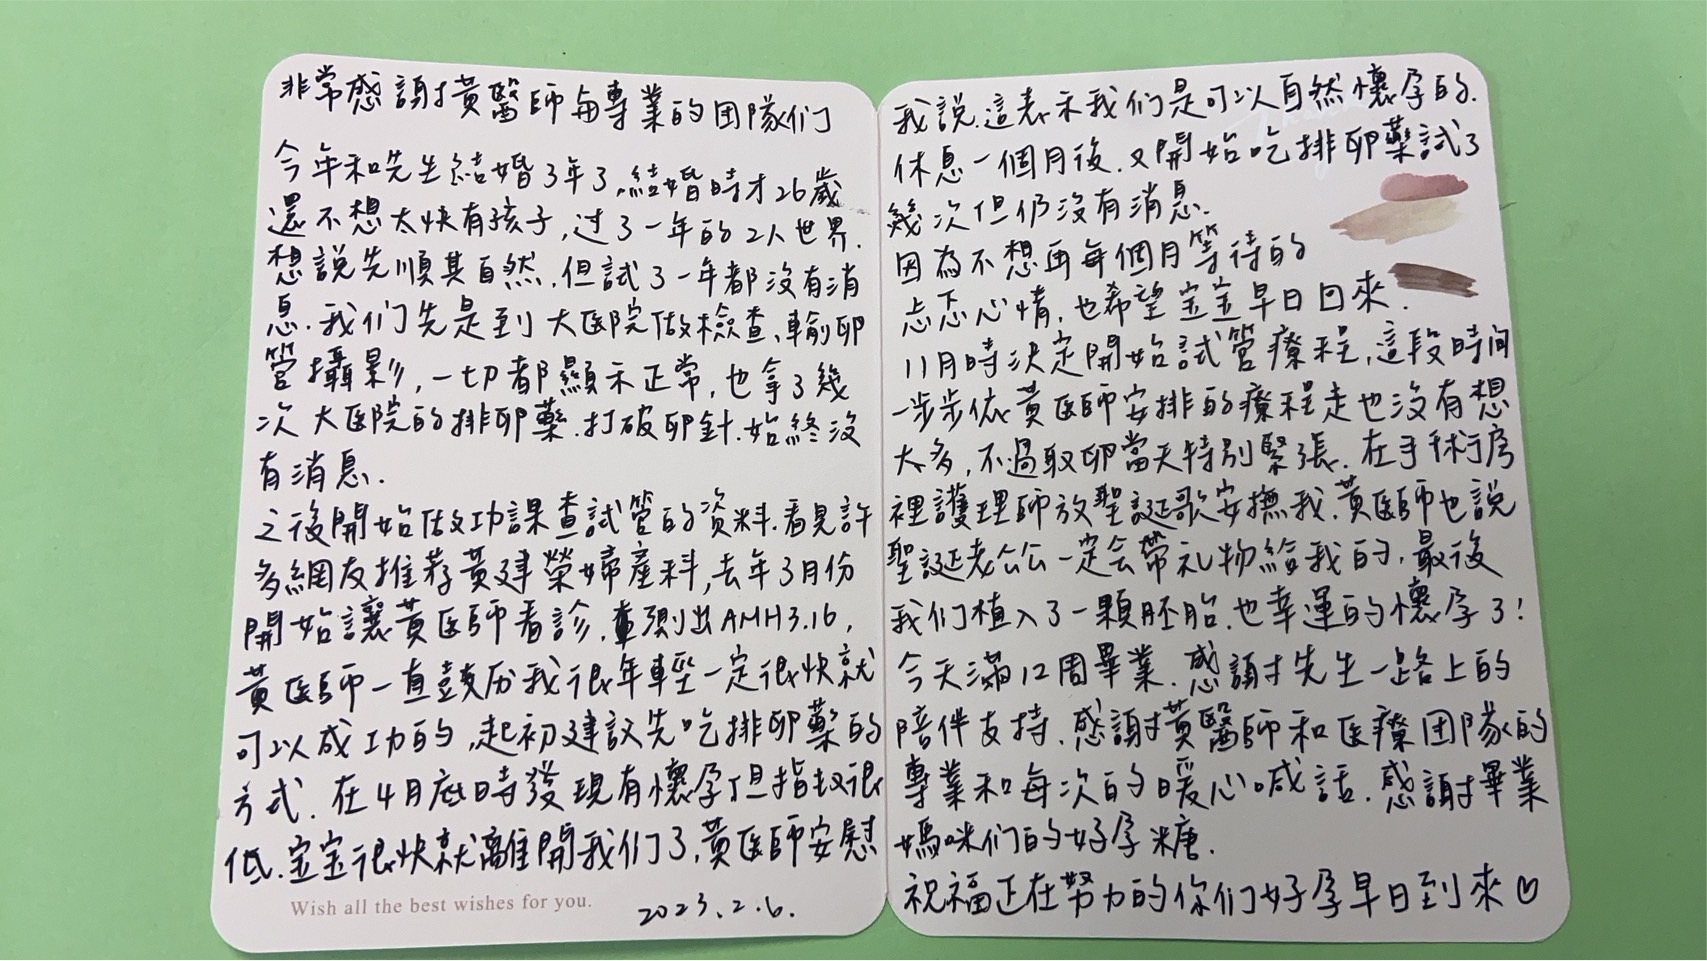 非常感謝黃醫師每專業的团隊们
今年和先生結婚3年了.結婚時才26歲
還不想太快有孩子,过了一年的2人世界.
想說先順其自然.但試了一年都沒有消
息.我们先是到大医院做檢查、輸卵
管攝影,一切都顯示正常,也拿了幾
次大医院的排卵藥.打破卵針.始終沒
有消息.
之後開始做功課查試管的資料.看見許
多網友推荐黃建榮婦產科,去年3月份
開始讓黃医師看診.量測出AMH3.16,
黃医師一直鼓厉我很年輕一定很快就
可以成功的,起初建議先吃排卵藥的
方式.在4月底時發現有懷孕但指数很
低.宝宝很快就離開我们了,黃医師安慰
Wish all the best wishes for you.
2023.2.6.
我說.這表示我们是可以自然懷孕的.
休息一個月後.又開始吃排卵藥試了
幾次但仍沒有消息.
因為不想再每個月等待的
忐忑心情,也希望宝宝早日回來.
11月時決定開始試管療程,這段時间
一步步依黃医師安排的療程走也沒有想
太多,不過取卵當天特別緊張.在手術房
裡護理師放聖誕歌安撫我.黃医師也說
聖誕老公公一定会帶礼物給我的,最後
我们植入了一顆胚胎.也幸運的懷孕了!
今天滿12周畢業.感謝先生一路上的
陪伴支持.感謝黃醫師和医療团隊的
專業和每次的暖心喊話.感謝畢業
媽咪们的好孕糖.
祝福正在努力的你们好孕早日到來♡